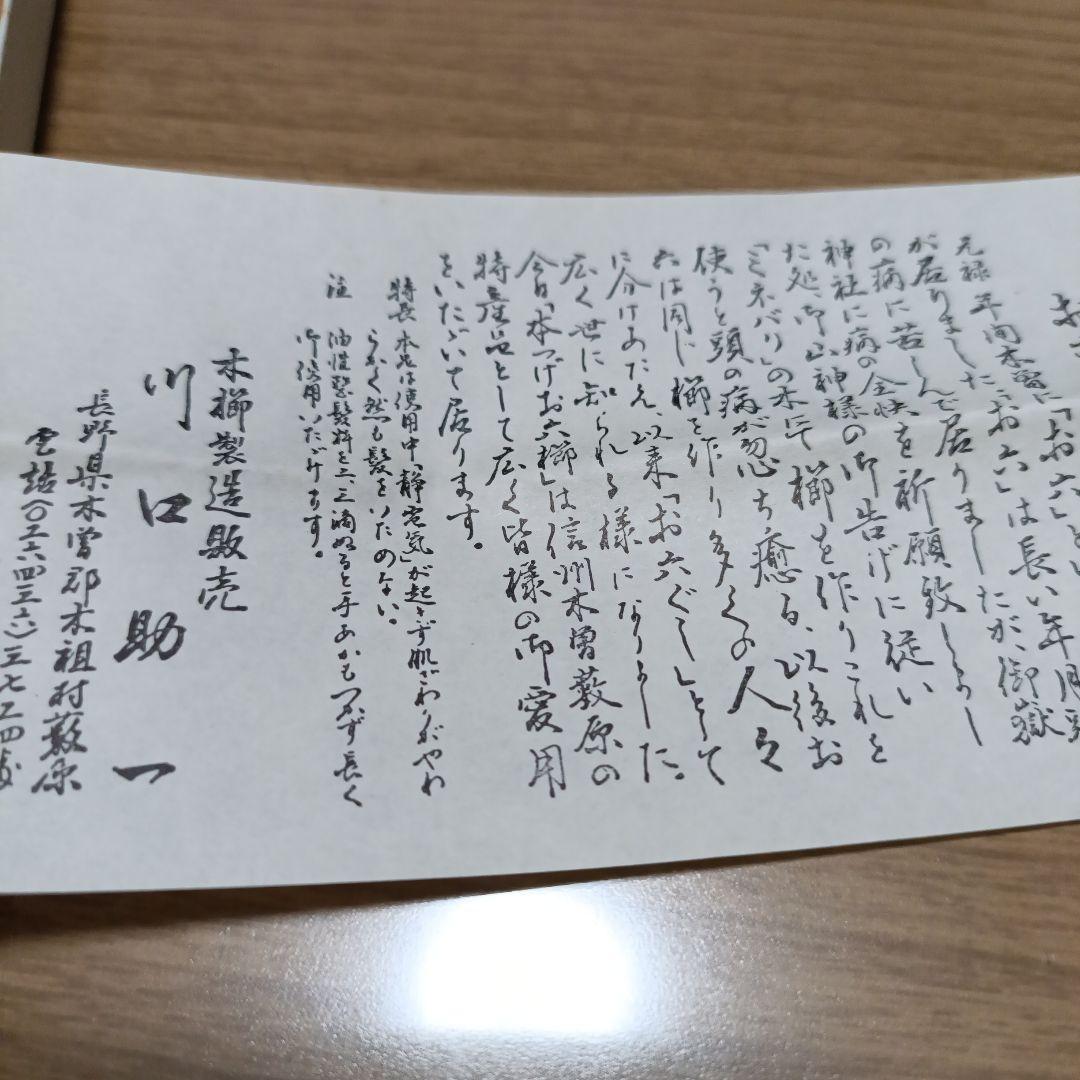 元禄年間木曽に「お六」とい
が居りました「お六」は長い年月頭
の病に苦しんで居りましたが、御嶽
神社に病の全快を祈願致しまし
た処、御山神様の御告げに従い
「ミネバリ」の木にて櫛を作りこれを
使うと頭の病が忽ち癒る、以後お
六は同じ櫛を作り多くの人々
に分けあたえ、以来「お六ぐし」として
広く世に知られる様になりました。
今日「本つげお六櫛」は信州木曽薮原の
特産品として広く皆様の御愛用
をいただいて居ります。
特長 本品は使用中、「静電気」が起きず肌ざわりがやわ
らかく然も髪をいためない。
注 油性整髪料を二、三滴ぬると手あかもつかず長く
御使用いただけます。
木櫛製造販売
川口助一
長野県木曽郡木祖村薮原
電話(〇二六四三六)